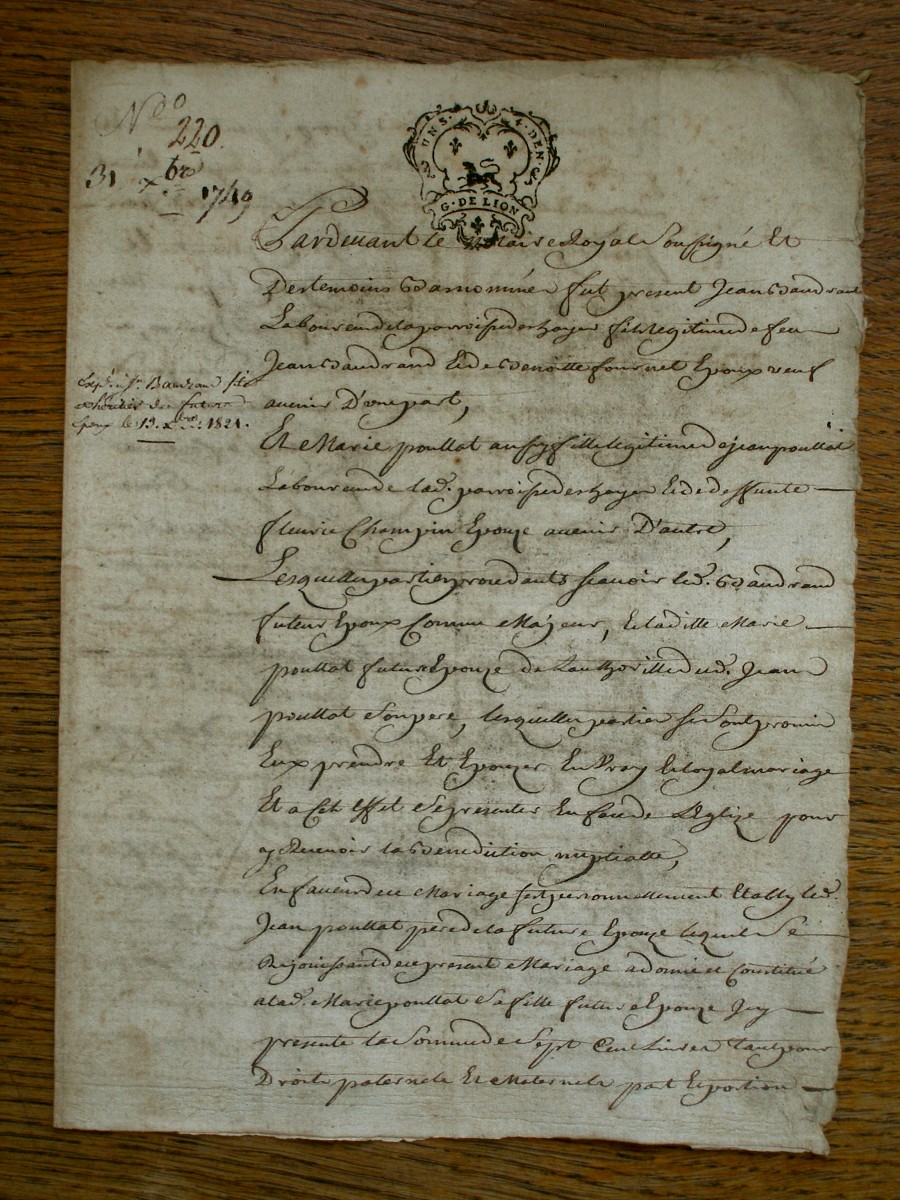 N.º 220.
31 xbre 1749
UN S. 4. DEN.
G. DE LION
Pardevant le Notaire Royal Soussigné Et
Des temoins bas nommés fut present Jean Baudrand
Laboureur de la parroisse des hayes fils legitime de feu
Jean Baudrand Et de Benoitte fournel Epoux veuf
avenir D'une part,
Et Marie poullat aussy fille legitime de jean poullat
Laboureur de lad. parroisse des hayes Et de deffunte
fleurie Champin Epouze avenir D'autre,
Lesquelles parties procedants scavoir led. Baudrand
futeur Epoux Comme Majeur, Et laditte Marie
poullat future Epouze de L'authorité dud. Jean
poullat Son pere, lesquelles parties se sont promis
Eux prendre Et Epouzer En vray Et loyal mariage
Et a Cet effet Se presenter En face de L'Eglize pour
y Recevoir la Benediction nuptialle,
En faveur de ce Mariage s'est personnellement Etably led.
Jean poullat pere de la future Epouze lequel Se
Rejouissant de ce present Mariage a donné et Constitué
a lad. Marie poullat Sa fille future Epouze Icy
presente la Somme de Sept Cent Livres tant pour
Droits paternels Et Maternels part Et portion
Expé. à Sr. Baudrand fils
& héritier du futur
Epoux le 13. xbre. 1821.